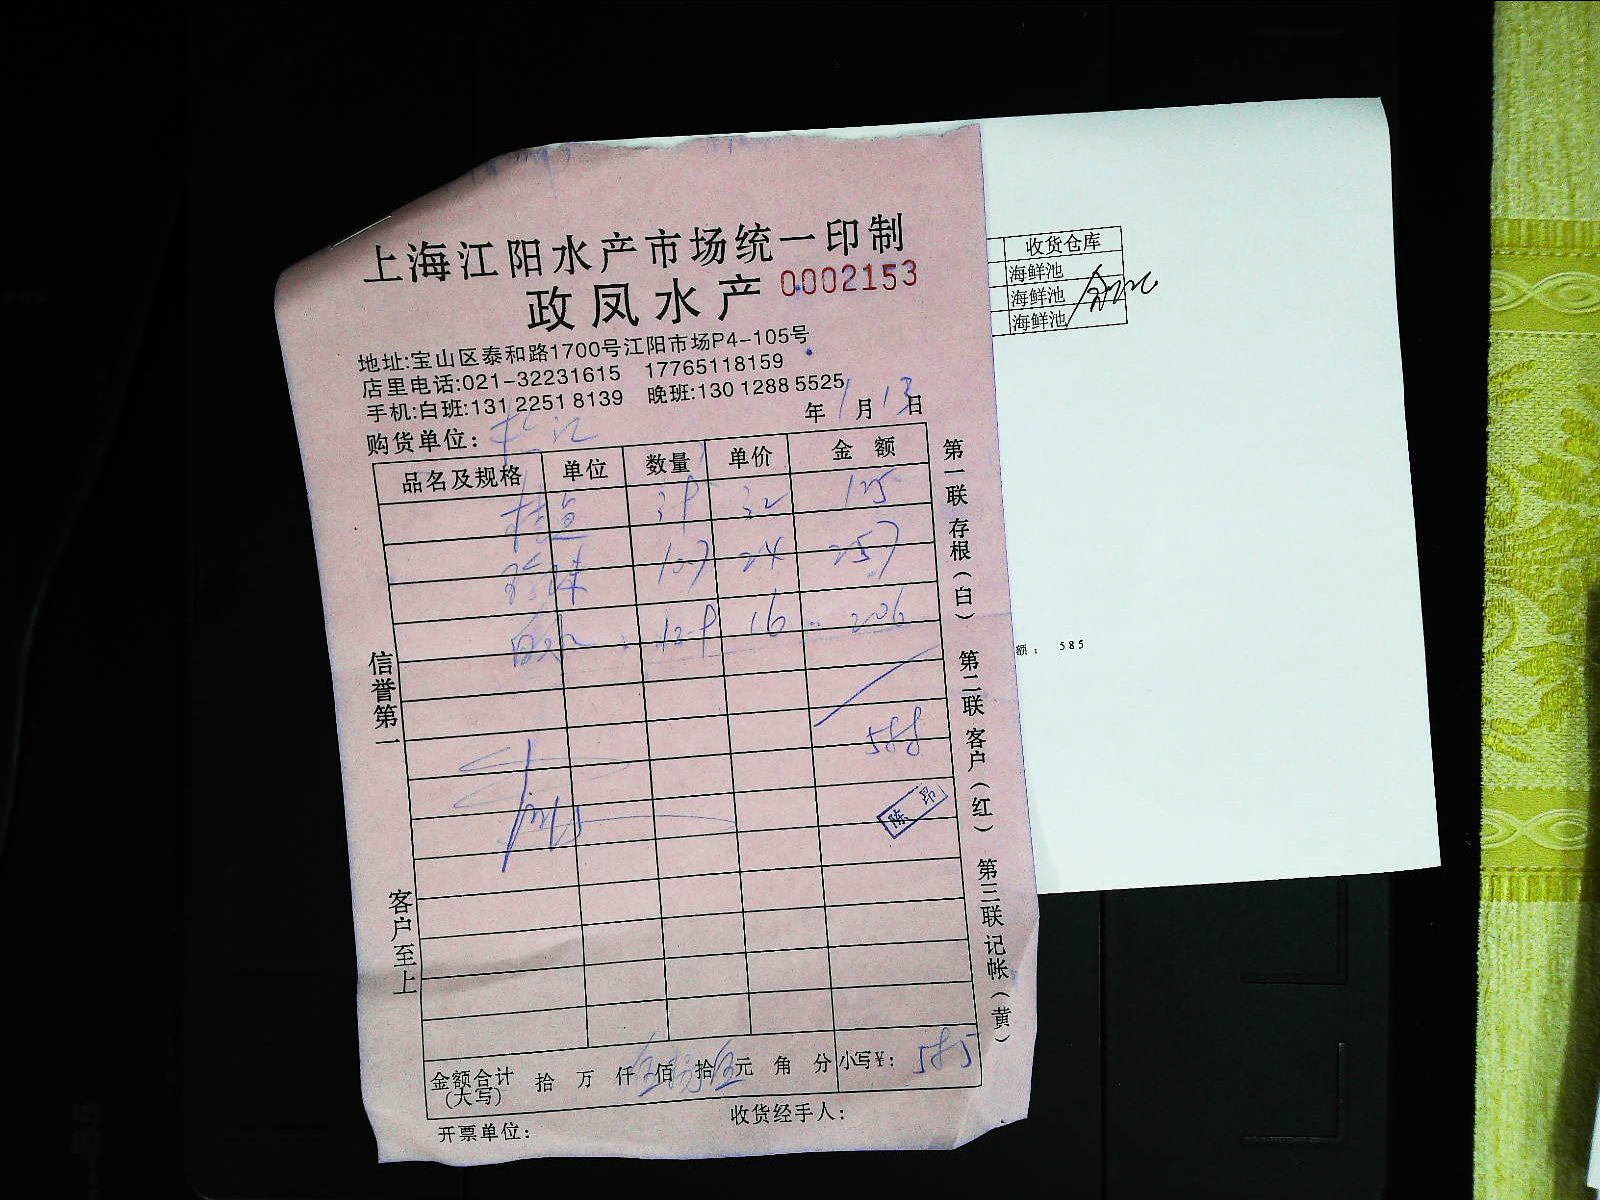 上海江阳水产市场统一印制
政凤水产 0002153
地址:宝山区泰和路1700号江阳市场P4-105号
店里电话:021-32231615 17765118159
手机:白班:131 2251 8139 晚班:130 1288 5525
年 1 月 13 日
购货单位:
品名及规格 单位 数量 单价 金 额
桂鱼 32 125
珍珠 10.7 24 257
16 206
588
陈昂
金额合计(大写) 拾 万 仟 伍 佰 捌 拾 伍 元 角 分 小写¥: 585
开票单位: 收货经手人:
信誉第一
客户至上
第一联存根(白)
第二联客户(红)
第三联记帐(黄)
收货仓库
海鲜池
海鲜池
海鲜池
额: 585